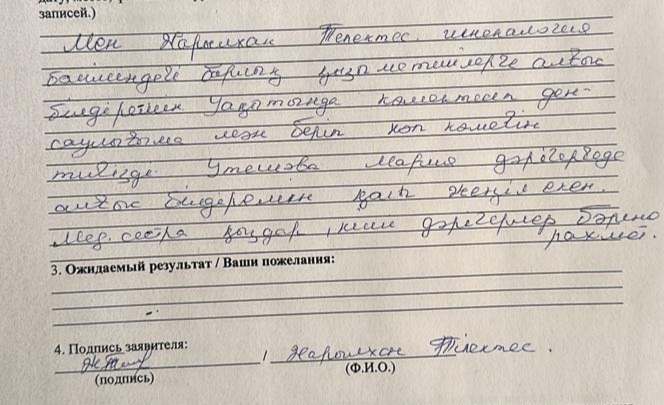 записей.)
Мен Нарылхан Телектес. гинекалогия
байлмендегі барлық қызыметшілерге алғыс
білдеремин Уақытында комектесеп ден-
саулығыма мән беріп көп комегін
тиівізді. Утешова Мария дәрігергеде
алғыс білдеремен қалы жеңіл екен.
Мед. сестра қыздар, кіші дәрігерлер бәріңо
рахмет.
3. Ожидаемый результат / Ваши пожелания:
4. Подпись заявителя:
/ Нарылхон Тілектес.
(подпись) (Ф.И.О.)